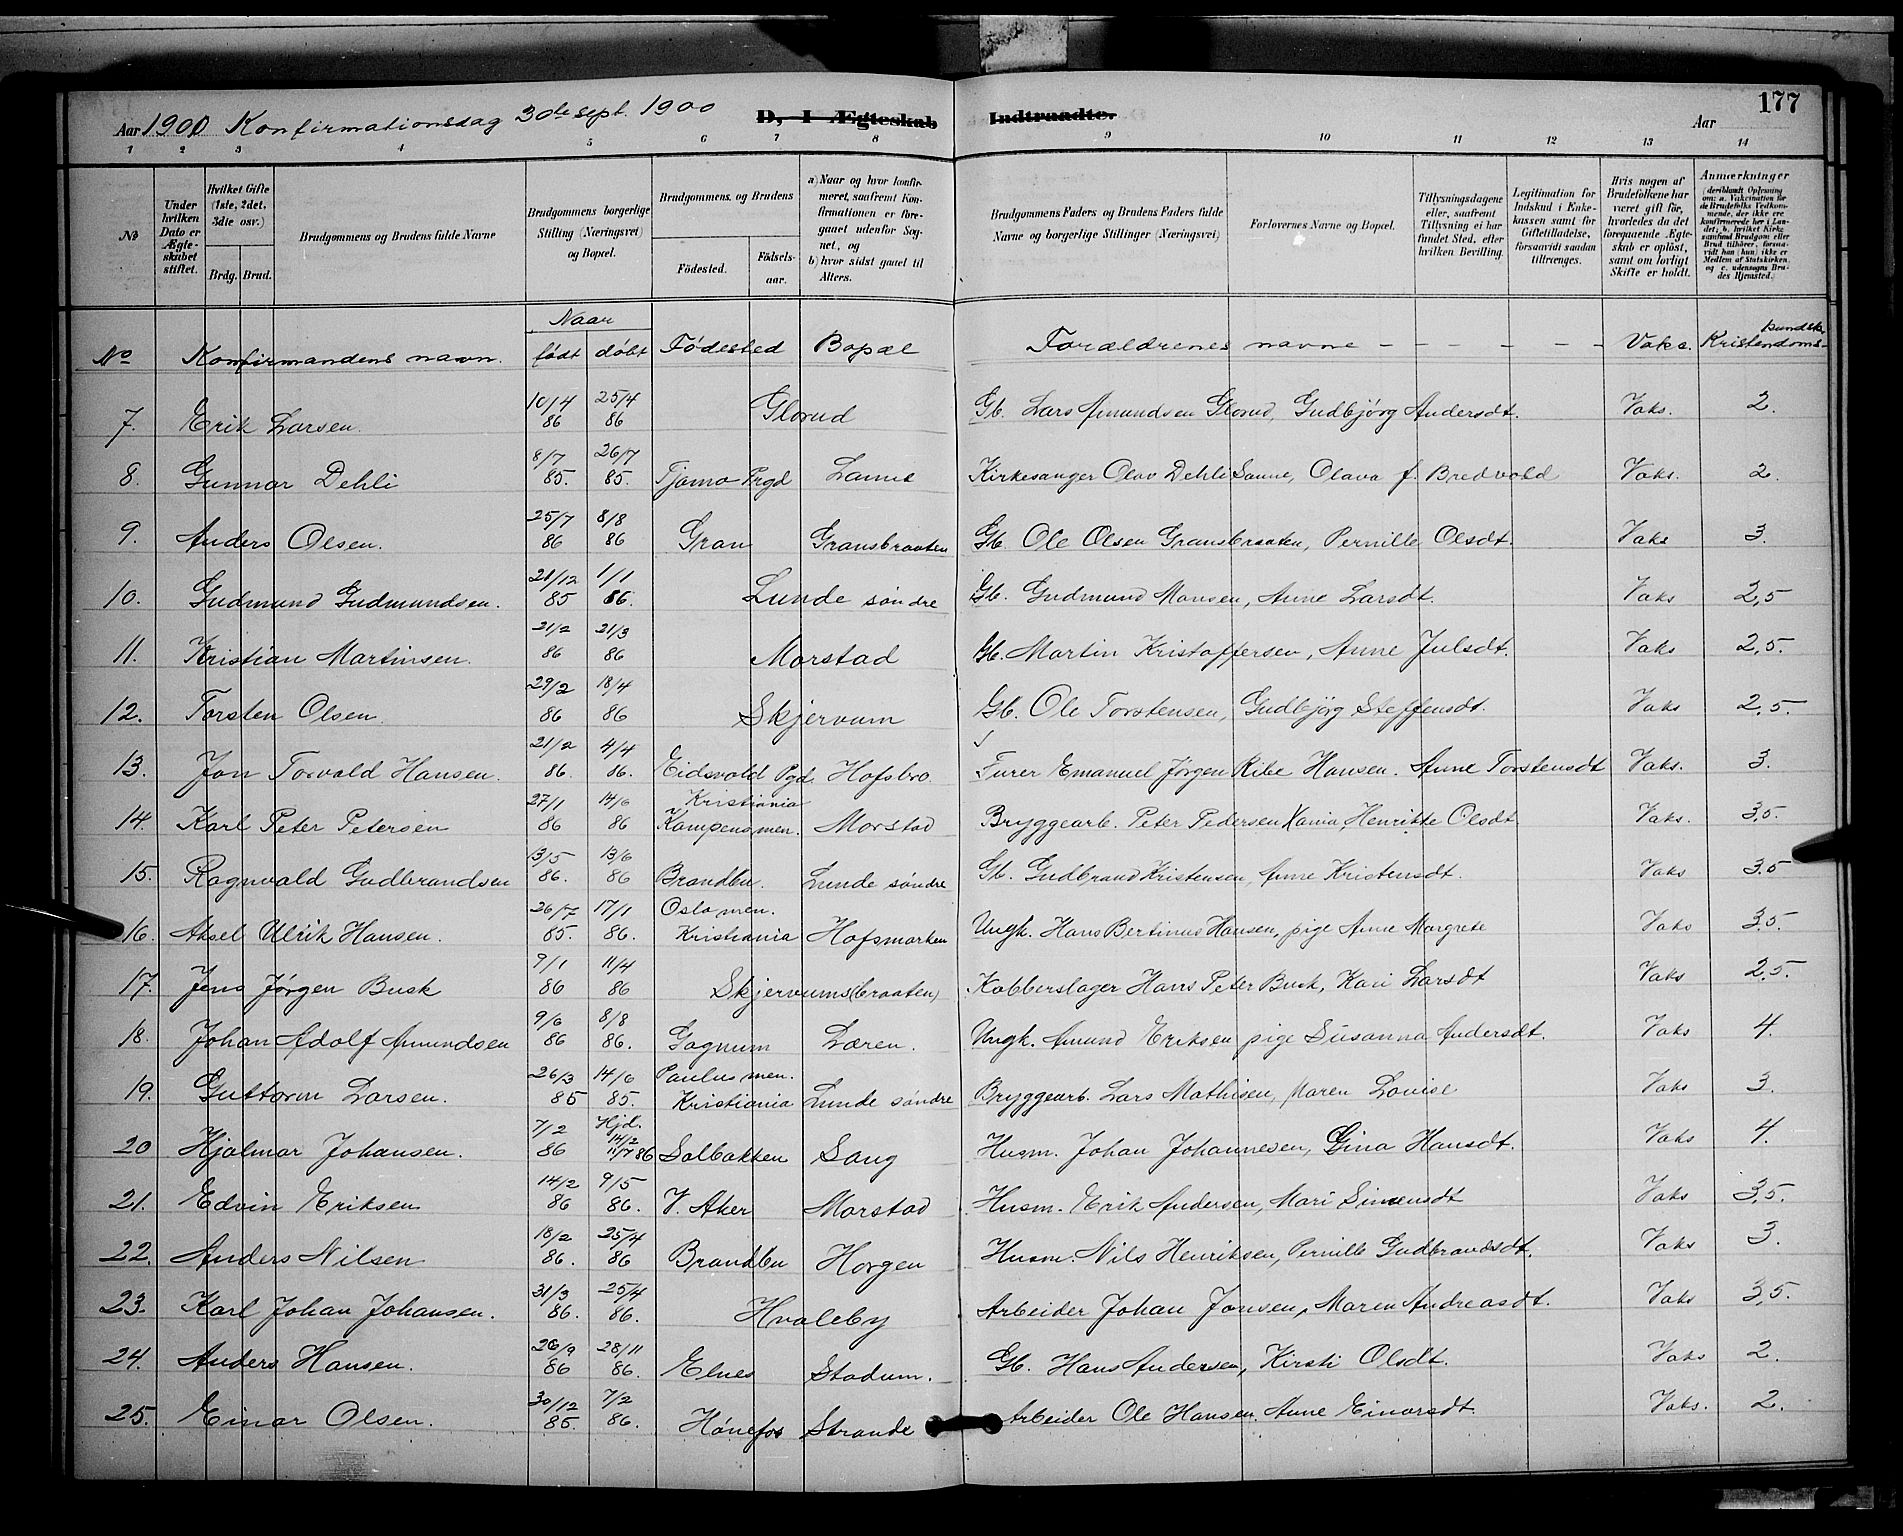 Aar 1900 Konfirmationsdag 30de sept. 1900 D, I Ægteskab Indtraadte. Aar 177
1 2 3 4 5 6 7 8 9 10 11 12 13 14
№
Under hvilken Dato er Ægteskabet stiftet.
Hvilket Gifte (1ste, 2det, 3die osv.)
Brdg. Brud.
Brudgommens og Brudens fulde Navne
Brudgommens borgerlige Stilling (Næringsvei) og Bopæl.
Brudgommens. og Brudens
Fødested. Fødsels-aar.
a) Naar og hvor konfirmeret, saafremt Konfirmationen er foregaaet udenfor Sognet, og
b) hvor sidst gaaet til Alters.
Brudgommens Faders og Brudens Faders fulde Navne og borgerlige Stillinger (Næringsvei)
Forlovernes Navne og Bopæl.
Tillysningsdagene eller, saafremt Tillysning ei har fundet Sted, efter hvilken Bevilling.
Legitimation for Indskud i Enkekassen samt for Giftetilladelse, forsaavidt saadan tiltrænges.
Hvis nogen af Brudefolkene har været gift før, hvorledes da det foregaaende Ægteskab er opløst, samt om lovligt Skifte er holdt.
Anmærkninger (deriblandt Oplysning om: a. Vaccination for de Brudefolks Vedkommende, der ikke ere konfirmerede her i Landet; b. hvilket Kirkesamfund Brudgom eller Brud tilhører, forsaavidt han (hun) ikke er Medlem af Statskirken, og c. udensogns Brudes Hjemsted.
No Konfirmandens navn. Naar født døbt Fødested Bopæl Forældrenes navne - - - - - - Vakc. Kristendoms-kundsk.
7. Erik Larsen. 10/4 86 25/4 86 Glorud Gb. Lars Amundsen Glorud, Gudbjørg Andersdt. Vaks. 2.
8. Gunnar Dehli 8/7 85. 26/7 85. Tjømø Prgd Sanne Kirkesanger Olav Dehli Sanne, Olava f. Bredvold Vaks. 2
9. Anders Olsen. 25/7 86 8/8 86 Gran Gransbraaten Gb. Ole Olsen Gransbraaten, Pernille Olsdt. Vaks 3.
10. Gudmund Gudmundsen. 28/12 85 1/1 86. Lunde søndre Gb. Gudmund Monsen, Anne Larsdt. Vaks 2,5
11. Kristian Martinsen. 21/2 86 21/3 86 Morstad Gb. Martin Kristoffersen, Anne Julsdt. Vaks 2,5.
12. Torsten Olsen. 29/2 86 18/4 86 Skjervum Gb. Ole Torstensen, Gudbjørg Steffensdt. Vaks 2,5.
13. Jon Torvald Hansen. 21/2 86. 4/4 86. Eidsvold Pgd. Hofsbro. Furer Emanuel Jørgen Ribe Hansen. Anne Torstensdt Vaks. 3.
14. Karl Peter Petersen 27/1 86 14/6 86 Kristiania Kampens men. Morstad Bryggearb. Peter Pedersen Xania, Henrikke Olsdt Vaks. 3,5.
15. Ragnvald Gudbrandsen 13/5 86. 13/6 86 Brandbu. Lunde søndre Gb. Gudbrand Kristensen, Anne Kristensdt. Vaks 3.5
16. Aksel Ulrik Hansen. 26/7 85. 17/1 86. Oslo men. Kristiania Hofsmarken Ungk. Hans Bertinus Hansen, pige Anne Margrete Vaks 3,5.
17. Jens Jørgen Busk 9/1 86 11/4 86 Skjervums(braaten) Kobberslager Hans Peter Busk, Kari Larsdt Vaks 2,5.
18. Johan Adolf Amundsen 9/6 86 8/8 86. Gagnum Læren. Ungk. Amund Eriksen pige Susanna Andersdt. Vaks 4.
19. Guttorm Larsen. 26/3 85 14/6 85. Paulus men. Kristiania Lunde søndre Bryggearb. Lars Mathisen, Maren Lovise Vaks 3.
20 Hjalmar Johansen. 7/2 86 Hjd. 14/2 11/7 86 Solbakken Sang Husm. Johan Johannesen, Gina Hansdt. Vaks 4.
21. Edvin Eriksen 14/2 86 9/5 86. V. Aker Morstad Husm. Erik Andersen, Mari Simensdt Vaks 3,5.
22. Anders Nilsen 18/2 86. 25/4 86 Brandbu Horgen Husm. Nils Henriksen, Pernille Gudbrandsdt. Vaks 3.
23. Karl Johan Johansen. 31/3 86. 25/4 86. Hvaleby Arbeider Johan Jonsen, Maren Andreasdt. Vaks 3,5.
24. Anders Hansen. 26/9 86 28/11 86. Elnes Stadum. Gb. Hans Andersen, Kirsti Olsdt. Vaks 2.
25. Einar Olsen. 30/12 85. 7/2 86. Hønefos Strande Arbeider Ole Hansen. Anne Einarsdt. Vaks. 2.